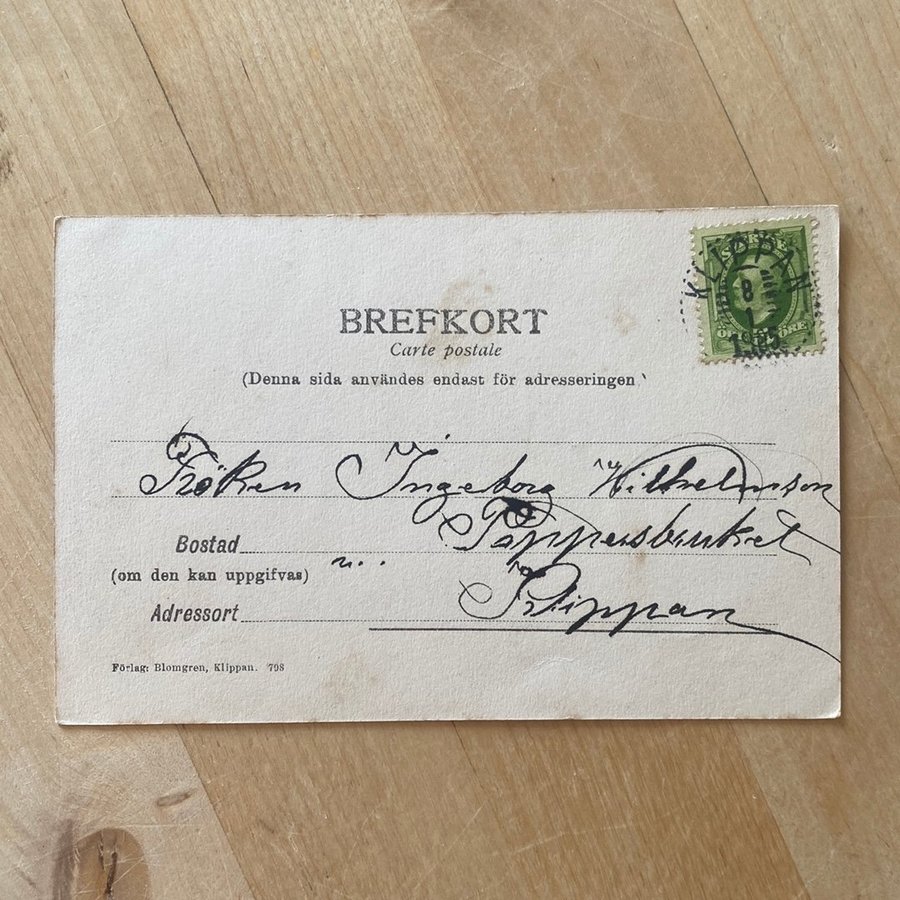 SVERIGE
KLIPPAN
8
1
BREFKORT
Carte postale
(Denna sida användes endast för adresseringen
Fröken Ingeborg Wilhelmson
Pappersbruket
Bostad
(om den kan uppgifvas)
Klippan
Adressort
Förlag: Blomgren, Klippan. 798